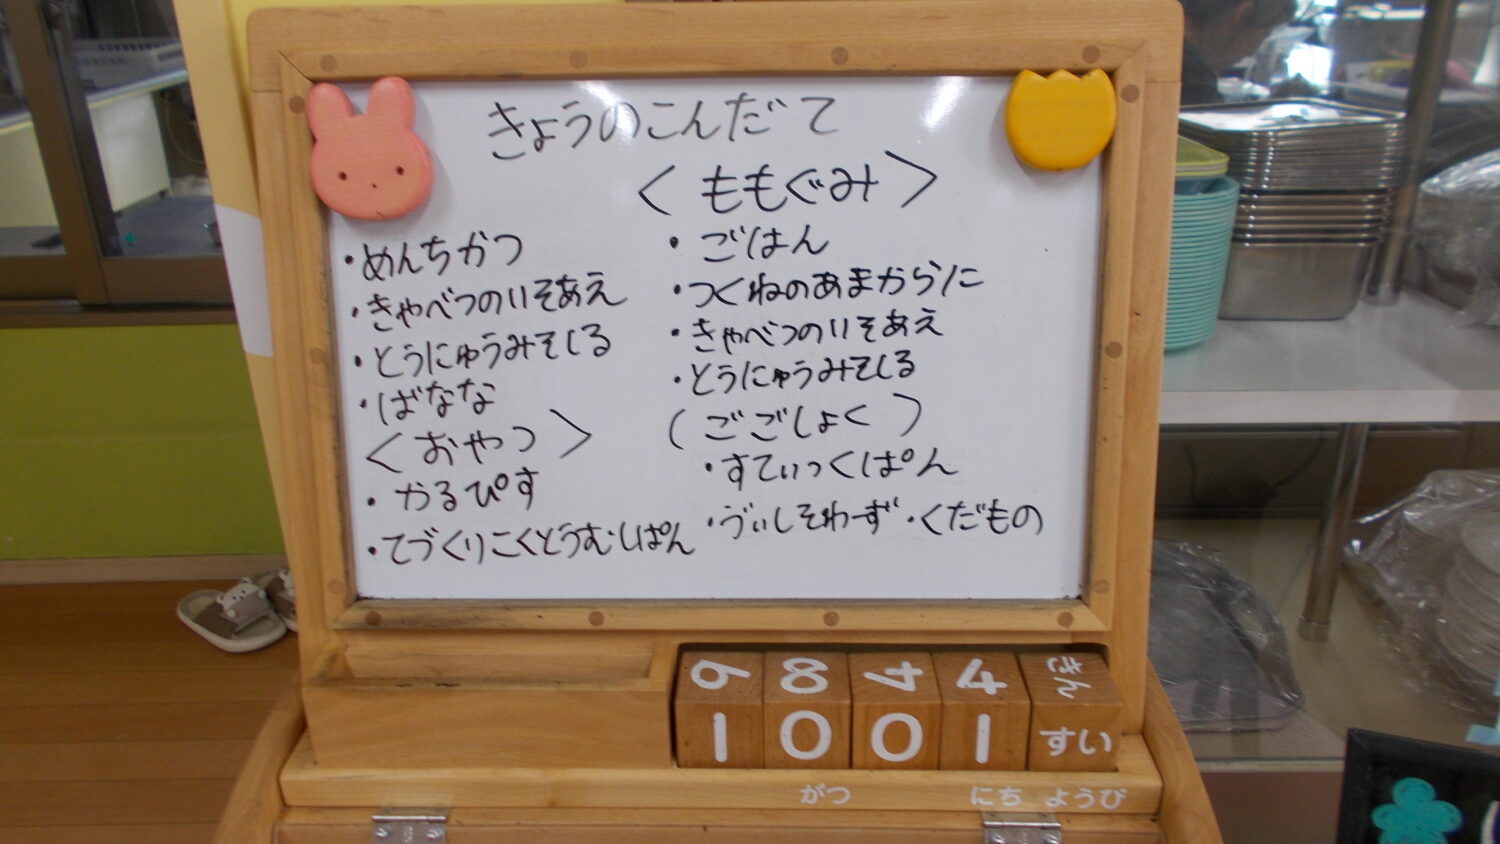 きょうのこんだて
・めんちかつ
・きゃべつのいそあえ
・とうにゅうみそしる
・ばなな
＜おやつ＞
・かるぴす
・てづくりこくとうむしぱん
＜ももぐみ＞
・ごはん
・つくねのあまからに
・きゃべつのいそあえ
・とうにゅうみそしる
（ごごしょく）
・すてぃっくぱん
・ゔぃしそわーず・くだもの
9 8 4 4 きん
1 0 0 1 すい
がつ にち ようび